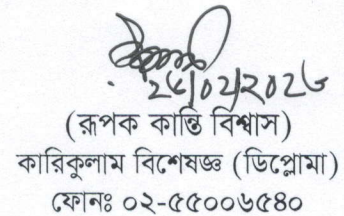 ২৫/০২/২০২৬
(রূপক কান্তি বিশ্বাস)
কারিকুলাম বিশেষজ্ঞ (ডিপ্লোমা)
ফোনঃ ০২-৫৫০০৬৫৪০